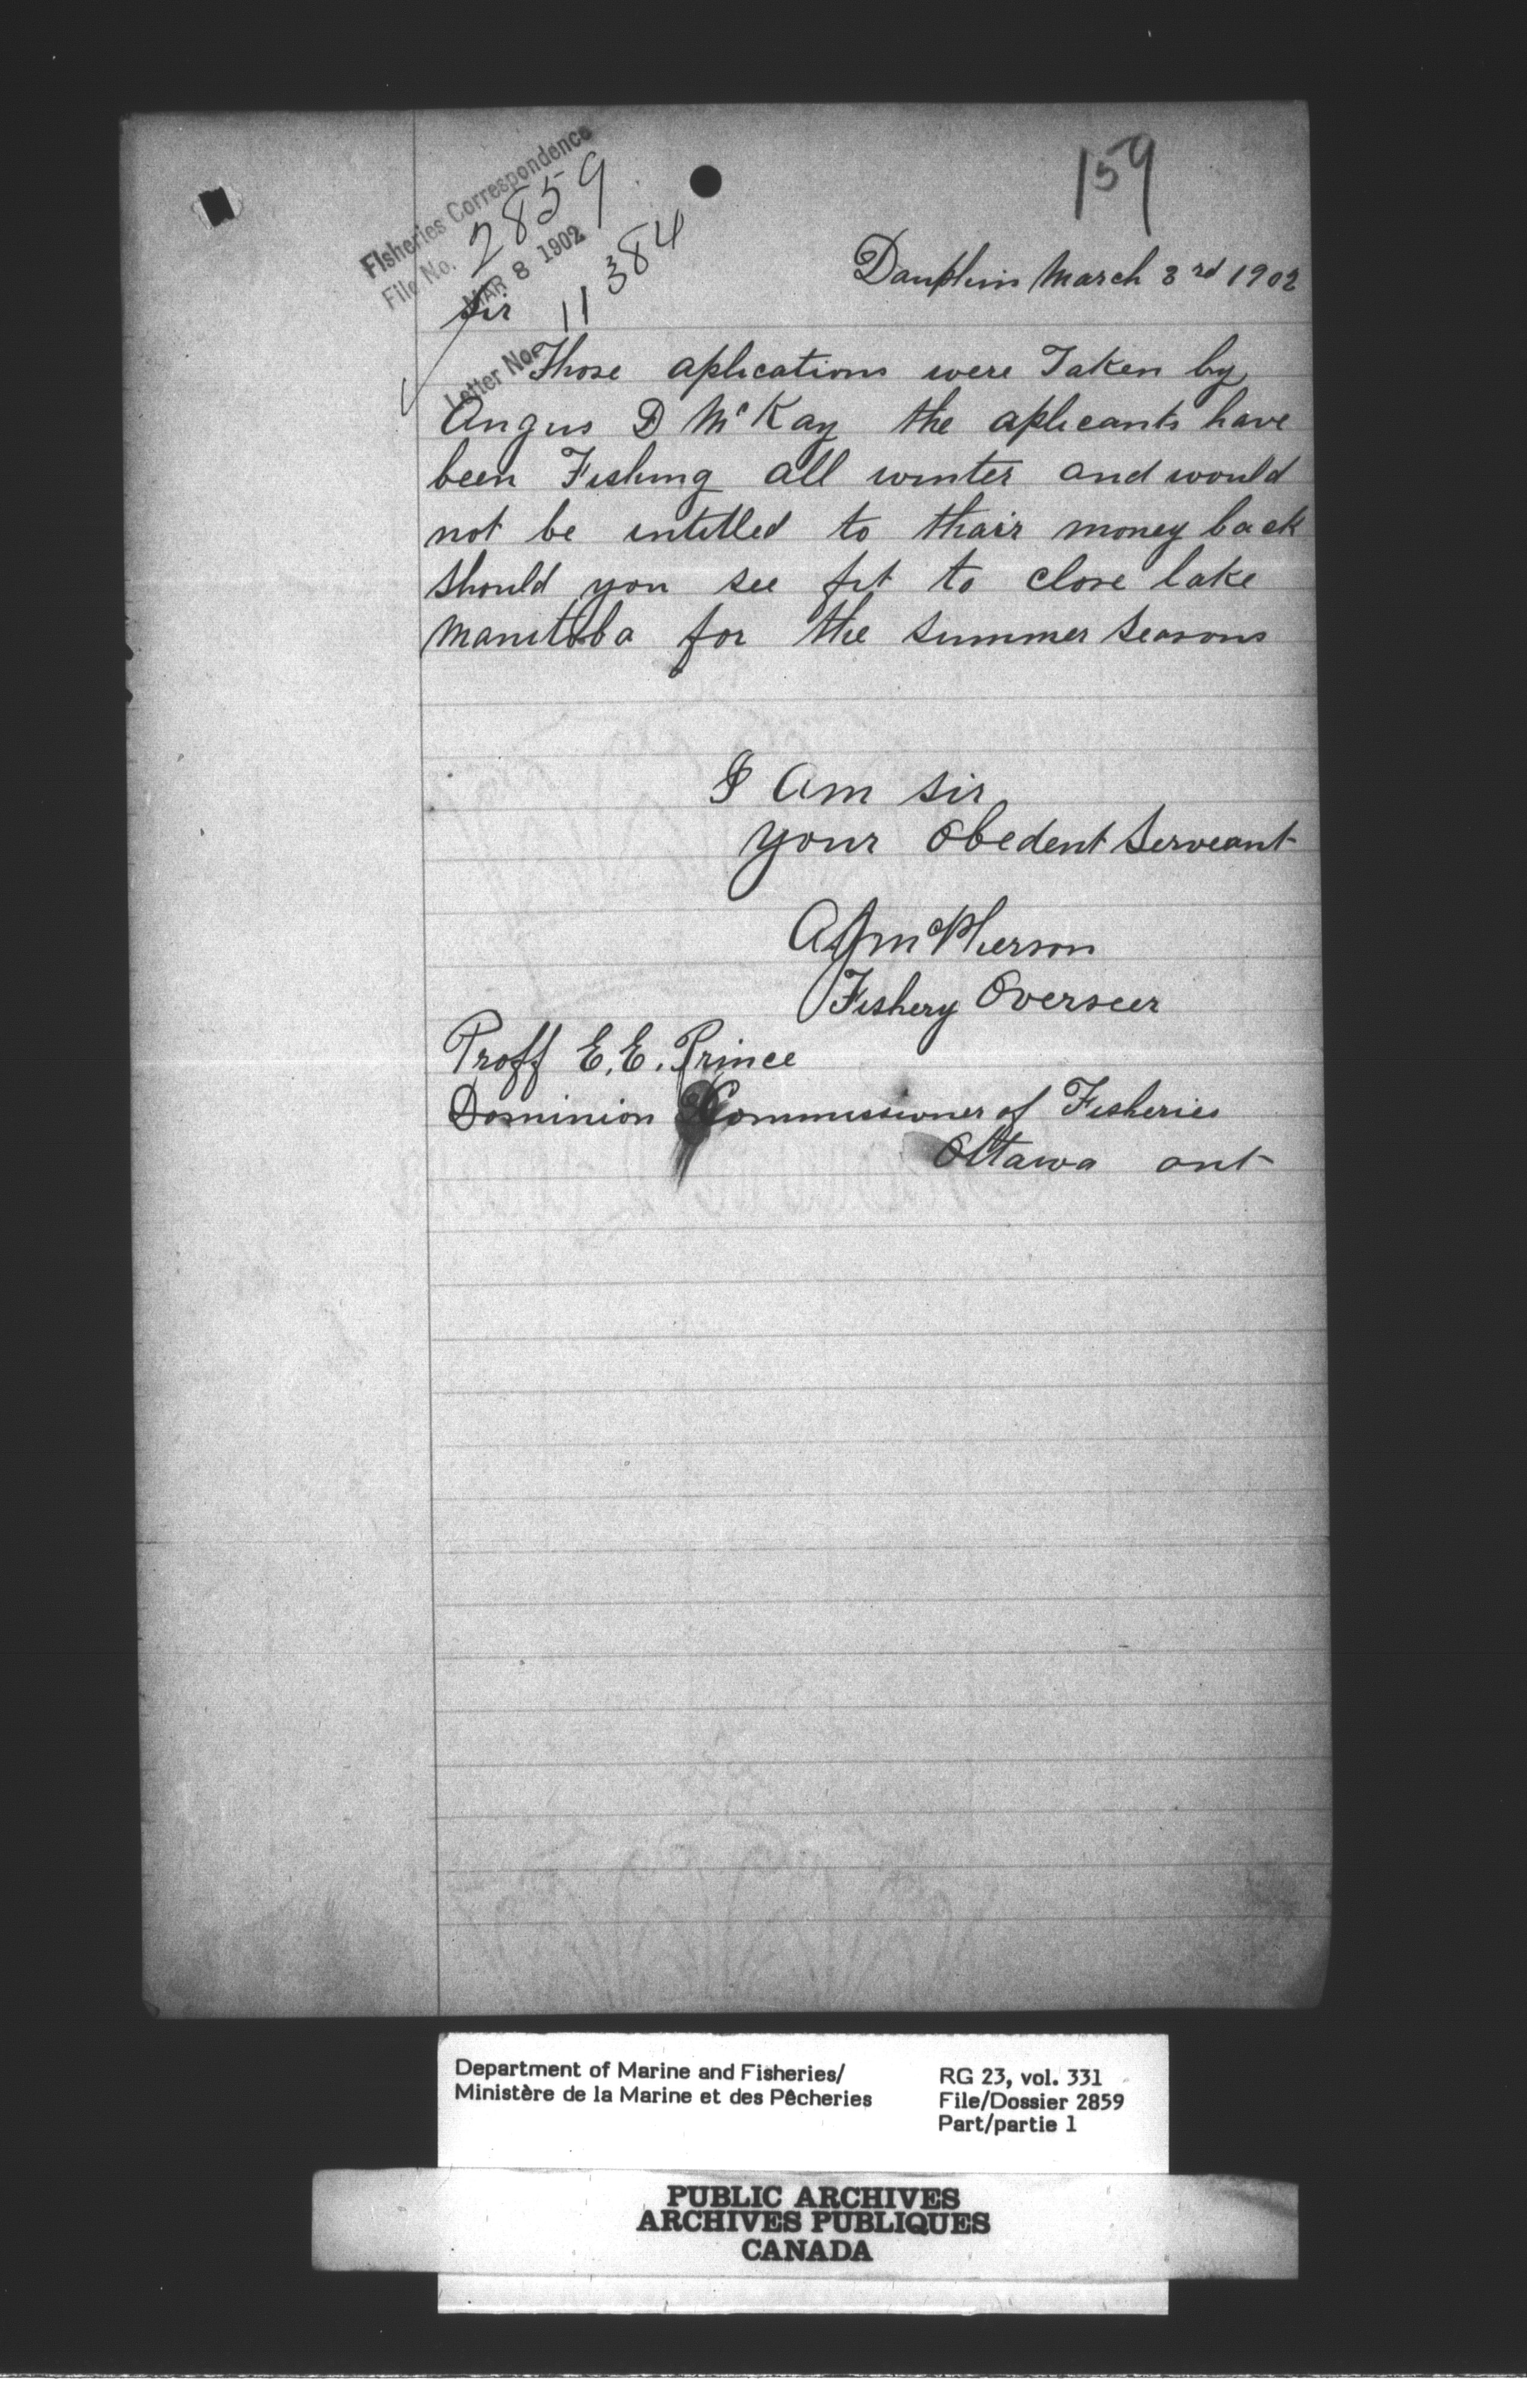 159
Fisheries Correspondence
File No. 2859
MAR 8 1902
Letter No. 11384
Dauphin March 3rd 1902
Sir
Those aplications were Taken by
Angus D McKay the aplicants have
been Fishing all winter and would
not be intitled to thair money back
should you see fit to close lake
manitoba for the summer seasons
I am sir
your obedent serveant
McPherson
Fishery Overseer
Proff E. E. Prince
Dominion Commissioner of Fisheries
Ottawa ont
Department of Marine and Fisheries/
Ministère de la Marine et des Pêcheries
RG 23, vol. 331
File/Dossier 2859
Part/partie 1
PUBLIC ARCHIVES
ARCHIVES PUBLIQUES
CANADA